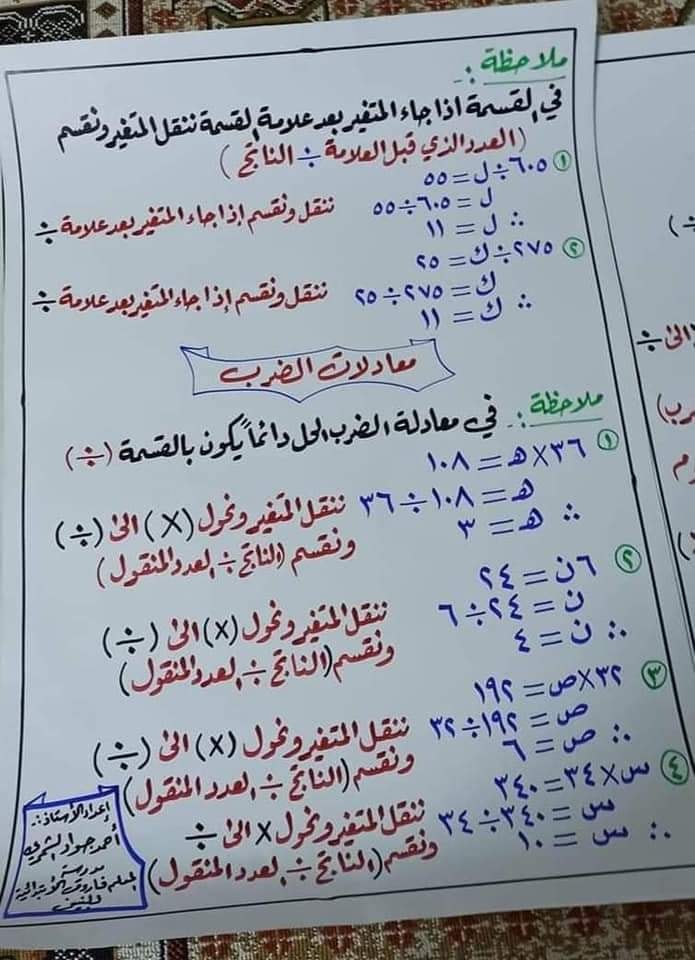 ملاحظة :-
في القسمة اذا جاء المتغير بعد علامة القسمة ننقل المتغير ونقسم
(العدد الذي قبل العلامة ÷ الناتج)
① ٦٠٥ ÷ ل = ٥٥
ل = ٦٠٥ ÷ ٥٥ ننقل ونقسم إذا جاء المتغير بعد علامة ÷
∴ ل = ١١
② ٢٧٥ ÷ ك = ٢٥
ك = ٢٧٥ ÷ ٢٥ ننقل ونقسم إذا جاء المتغير بعد علامة ÷
∴ ك = ١١
معادلات الضرب
ملاحظة :-
في معادلة الضرب الحل دائماً يكون بالقسمة (÷)
① ٣٦ × هـ = ١٠٨
هـ = ١٠٨ ÷ ٣٦ ننقل المتغير ونحول (×) الى (÷)
∴ هـ = ٣ ونقسم (الناتج ÷ العدد المنقول)
② ٦ن = ٢٤
ن = ٢٤ ÷ ٦ ننقل المتغير ونحول (×) الى (÷)
∴ ن = ٤ ونقسم (الناتج ÷ العدد المنقول)
③ ٣٢ × ص = ١٩٢
ص = ١٩٢ ÷ ٣٢ ننقل المتغير ونحول (×) الى (÷)
∴ ص = ٦ ونقسم (الناتج ÷ العدد المنقول)
④ س × ٣٤ = ٣٤٠
س = ٣٤٠ ÷ ٣٤ ننقل المتغير ونحول × الى ÷
∴ س = ١٠ ونقسم (الناتج ÷ العدد المنقول)
إعداد الأستاذ :-
أحمد جواد الشمري
مدرسة
فاروق الابتدائية
للبنين